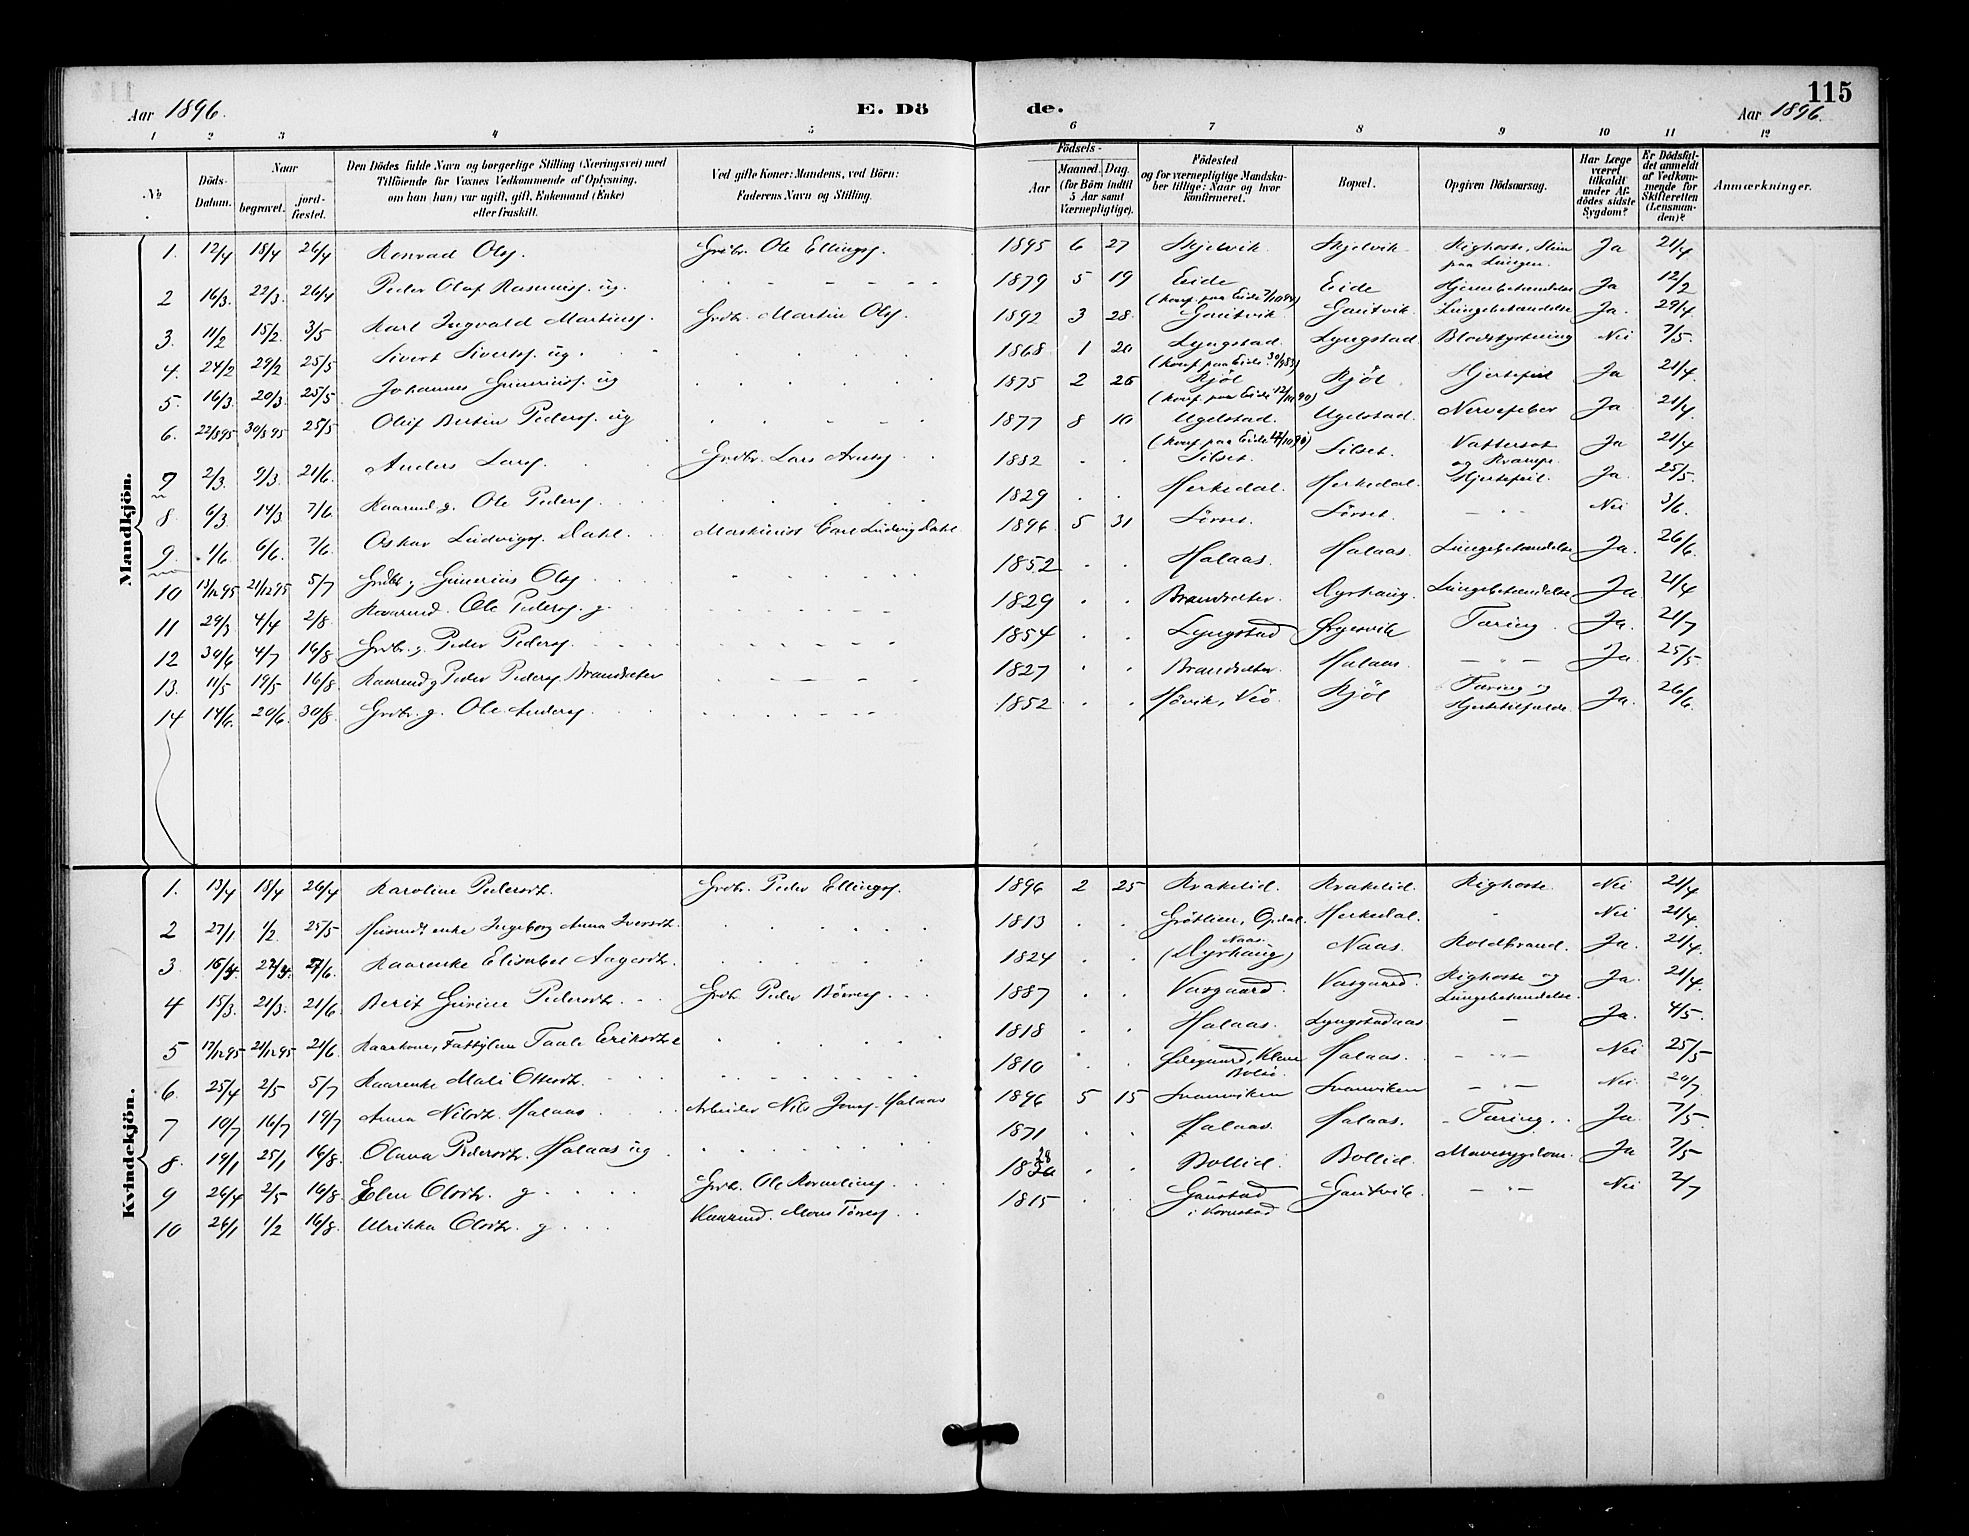 115
Aar 1896.
E. Dö
de.
Aar 1896.
1 2 3 4 5 6 7 8 9 10 11 12
№
Döds-
Datum.
Naar
begravet.
jord-
fæstet.
Den Dödes fulde Navn og borgerlige Stilling (Næringsvei) med
Tilföiende for Voxnes Vedkommende af Oplysning,
om han (hun) var ugift, gift, Enkemand (Enke)
eller fraskilt.
Ved gifte Koner: Mandens, ved Börn:
Faderens Navn og Stilling.
Födsels-
Aar
Maaned. Dag.
(for Börn indtil
5 Aar samt
Værnepligtige).
Födested
og for værnepligtige Mandska-
ber tillige: Naar og hvor
konfirmeret.
Bopæl.
Opgiven Dödsaarsag.
Har Læge
været
tilkaldt
under Af-
dödes sidste
Sygdom?
Er Dödsfal-
det anmeldt
af Vedkom-
mende for
Skifteretten
(Lensman-
den)?
Anmærkninger.
Mandkjön.
1. 12/4 18/4 26/4 Konrad Ols. Grdbr. Ole Ellings. 1895 6 27 Skjelvik. Skjelvik Kighoste, Slim paa Lungen. Ja 21/4
2 16/3. 22/3. 26/4 Peder Olaf Rasmuss. ug. 1879 5 19 Eide (konf. paa Eide 7/10 94) Eide Hjernebetændelse Ja 12/2
3. 11/2 15/2. 3/5 Karl Ingvald Martins. Grdbr. Martin Ols. 1892 3 28. Gautvik. Gautvik. Lungebetændelse Ja. 29/4
4. 24/2 29/2 25/5 Sivert Siverts. ug. 1868 1 20 Lyngstad. (konf. paa Eide 30/9 83) Lyngstad Blodstyrtning Nei 7/5.
5. 16/3. 20/3. 25/5 Johannes Gunnarius. ug 1875 2 26 Kjöl (konf. paa Eide 12/10 90) Kjöl Hjertefeil Ja 21/4.
6. 22/8 95 30/8 95 25/5 Oluf Bertin Peders. ug 1877 8 10 Ugelstad. Ugelstad. Nervefeber Ja. 21/4.
7 2/3. 9/3. 21/6. Anders Lars. Grdbr. Lars 1882 Silset. Silset. Vattersot og Krampe. Ja 21/4
8. 6/3 14/3. 7/6. Kaarmd. g. Ole Peders. 1829 Herkedal. Herkedal. Hjertefeil. Ja. 25/5.
9. 1/6. 6/6. 7/6. Oskar Ludvigs. Dahl. Maskinist Carl Ludvig Dahl 1896. 5 31 Sörset. Sörset. — " — Nei 3/6.
10 13/12 95 21/12 95 5/7 Grdbr. g. Gunerius Ols. 1852 Halaas. Halaas. Lungebetændelse Ja. 26/6.
11 29/3 4/4 2/8 Kaarmd. Ole Peders. g. 1829 Brandsæter. Dyrhaug. Lungebetændelse Ja 21/4
12 30/6 4/7 16/8 Grdbr. g. Peder Peders. 1854 Lyngstad Öygarvik Tæring. Ja. 21/7
13. 11/5 19/5 16/8. Kaarmd. g. Peder Peders. Brandsæter 1827 Brandsæter. Halaas. — " — Ja. 25/5
14 14/6. 20/6. 30/8. Grdbr. g. Ole Anders. 1852 Hövik, Veö. Kjöl Tæring og Hjertetilfælde. Ja. 26/6.
Kvindekjön.
1. 13/4 18/4 26/4 Karoline Pedersdt. Grdbr. Peder Ellings. 1896 2 25 Krakelid. Krakelid. Kighoste. Nei 21/4
2 27/1 1/2. 25/5 Husmdsenke Ingeborg Anna Iversdt. 1813 Gröttien, Opdal. Herkedal. " Nei 21/4.
3. 16/4 22/4. 7/6. Kaarenke Elisabet Aagesdt. 1824 Naas. (Dyrhaug) Naas. Koldbrand. Ja. 21/4
4 15/3. 21/3. 21/6. Berit Gurine Pedersdt. Grdbr. Peder Börres. 1887 Vasgaard. Vasgaard. Kighoste og Lungebetændelse. Ja. 21/4.
5 17/12 95 21/12 95 21/6. Kaarkone, Fattiglem Taale Eriksdt. e 1818 Halaas. Lyngstadaas. — Ja. 4/5.
6. 25/4 2/5 5/7 Kaarenke Mali Ottersdt. 1810 Bolsö. Halaas. — " — Nei 25/5
7 10/7 16/7 19/7 Anna Nilsdt. Halaas Arbeider Nils Jons. Halaas 1896 5 15 Svanviken Svanviken — " — Nei 20/7
8. 19/1 25/1 16/8. Olava Pedersdt. Halaas ug 1871 Halaas. Halaas. Tæring. Ja. 7/5
9 26/4 2/5 16/8 Elen Olsdt. g. Grdb. Ole Kornelius. 1828 Bollid. Bollid. Mavesygdom. Ja 7/5
10 26/1 1/2 16/8. Ulrikka Olsdt. g. Kaarmd. Mons Törres. 1815 Gaustad i Kornstad Gautvik. — " — Nei 2/7